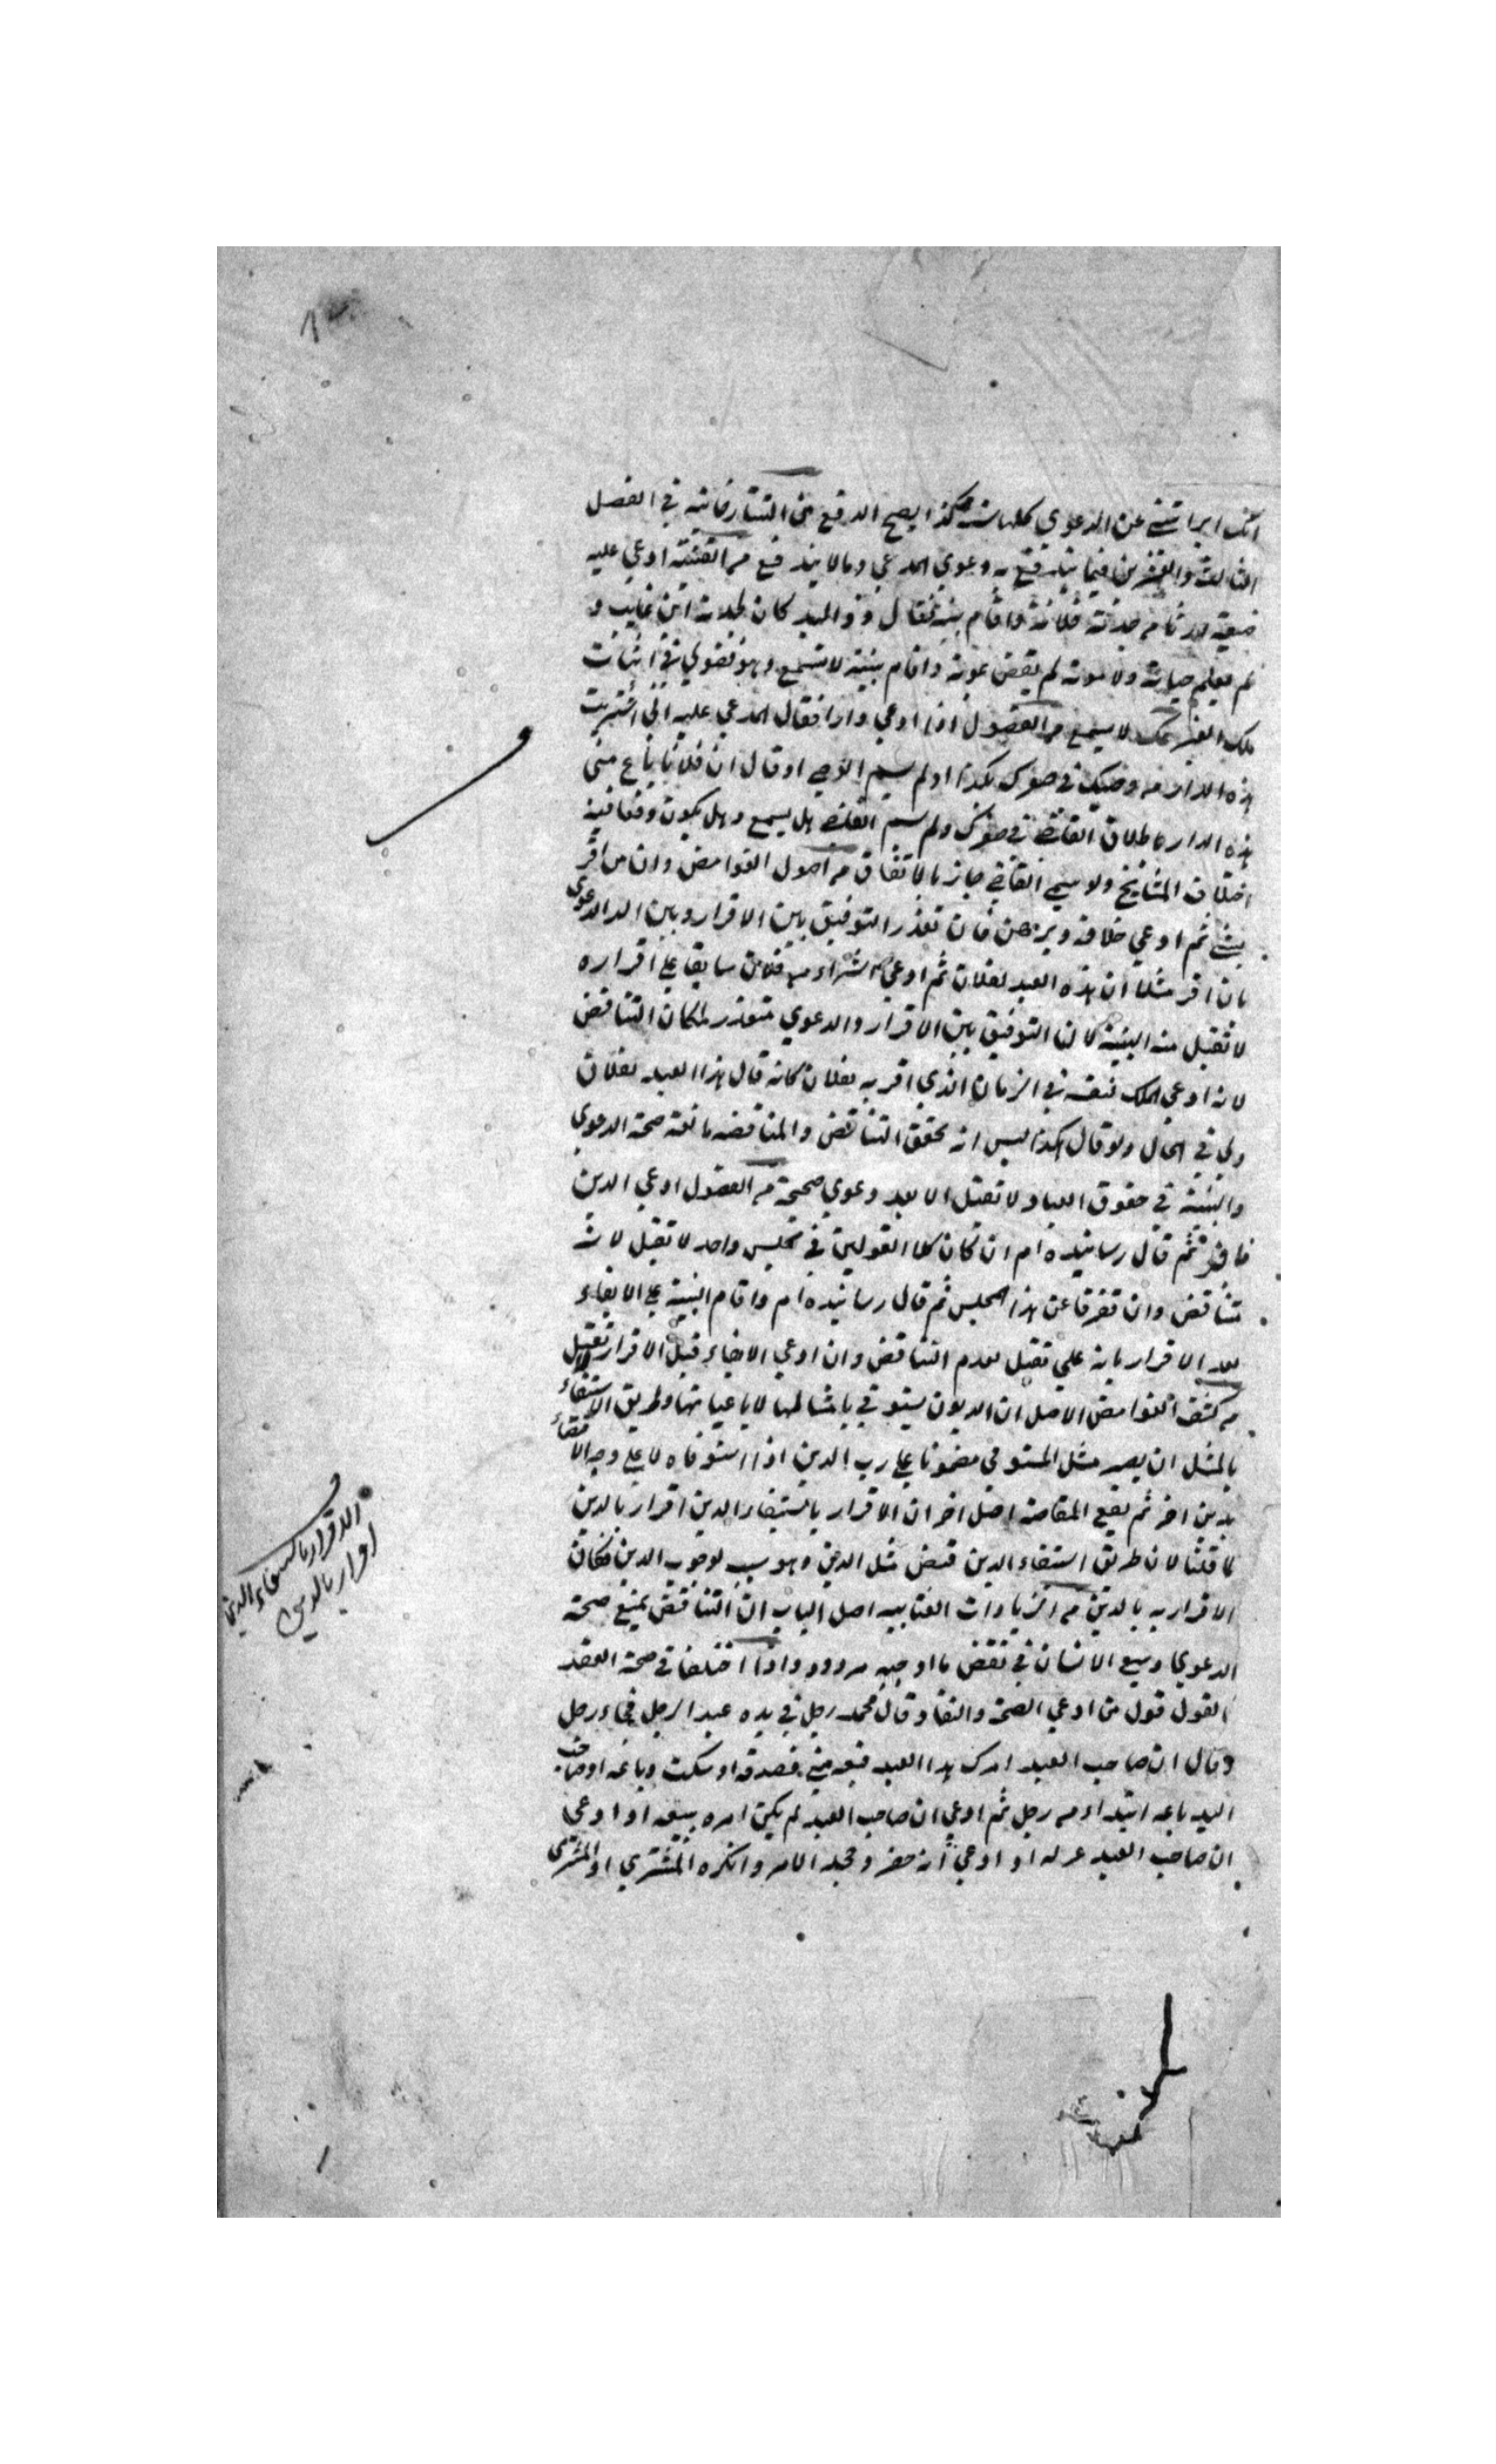 انك ابراتنى عن الدعوي كلها هكذا يصح الدفع من التتارخانية في الفصل
الثالث والعشرين فيما يندفع به دعوي المدعي ومالا يندفع من القنية ادعي عليه
ضيعة ارثا من جدته فلانة واقام بينة فقال ذو اليد كان لجدته ابن غايب و
لم يعلم حياته ولا موته لم يقض بموته واقام بينة لا تسمع وهو فضولي في اثبات
ملك الغير لا يسمع من الفصول اذا ادعي دارا فقال المدعي عليه اني اشتريت
هذه الدار من وصيك في صغرك بكذا ولم يسم الوصي او قال ان فلانا باع مني
هذه الدار باطلاق القاضي في صغرك ولم يسم القاضي هل يسمع وهل يكون دفعا فيه
اختلاف المشايخ ولا سيما القاضي جائز بالاتفاق من اصول الغوامض وان من اقر
بشئ ثم ادعي خلافه وبرهن فان تعذر التوفيق بين الاقرار وبين الدعوي
بان اقر مثلا ان هذه العبد لفلان ثم ادعي الشراء من فلان سابقا على اقراره
لا تقبل منه البينة لان التوفيق بين الاقرار والدعوي متعذر لمكان التناقض
لانه ادعي الملك لنفسه في الزمان الذي اقر به لفلان كانه قال هذا العبد لفلان
ولي في الحال ولو قال هكذا ليس انه يحقق التناقض والمناقضه مانعة صحة الدعوي
والبينة في حقوق العباد لا تقبل الا بعد دعوي صحيحة من الفصول ادعي الدين
فاقر ثم قال رسانيده ام ان كان كلا القولين في مجلس واحد لا تقبل لانه
تناقض وان تفرقا عن هذا المجلس ثم قال رسانيده ام واقام البينة على الايفاء
بعد الاقرار بانه علي تقبل لعدم التناقض وان ادعي الايفاء قبل الاقرار لا تقبل
من كشف الغوامض الاصل ان الديون يستوفي بامثالها لا باعيانها وطريق الاستيفاء
بالمثل ان يصير مثل المستوفي مضمونا على رب الدين اذا استوفاه لا على وجه الاقتضاء
بدين اخر ثم يقع المقاصة اصل اخر ان الاقرار باستيفاء الدين اقرار بالدين
لما قلنا لان طريق استيفاء الدين قبض مثل الدين وهو سبب لوجوب الدين فكان
الاقرار به بالدين من الزيادات العتابيه اصل الباب ان التناقض يمنع صحة
الدعوي وسع الانسان في نقض ما اوجبه مردود واذا اختلفا في صحة العقد
القول قول من ادعي الصحة والنفاذ قال محمد رجل في يده عبد الرجل فجاء رجل
وقال ان صاحب العبد امرك بهذا العبد فبعه مني فصدقه او سكت وباعه او صاحب
اليد باعه ابتداء من رجل ثم ادعي ان صاحب العبد لم يكن امره ببيعه او ادعي
ان صاحب العبد عزله او ادعي انه حضر وجحد الامر وانكره المشتري او المشترى
الاقرار باستيفاء الدين
اقرار بالدين